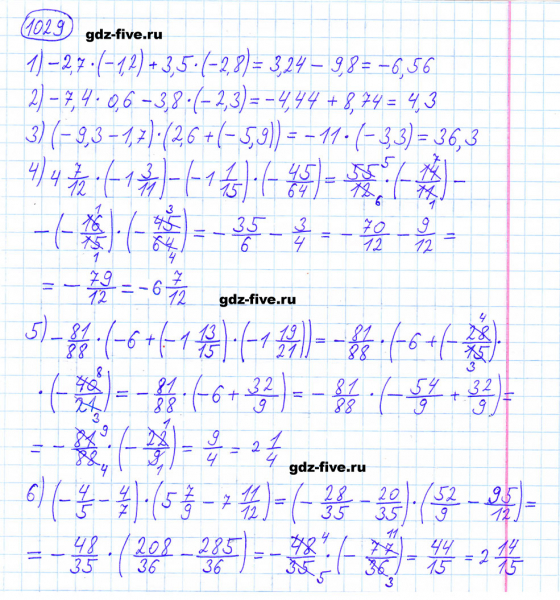 1029 gdz-five.ru
1) -2,7·(-1,2)+3,5·(-2,8)=3,24-9,8=-6,56
2) -7,4·0,6-3,8·(-2,3)=-4,44+8,74=4,3
3) (-9,3-1,7)·(2,6+(-5,9))=-11·(-3,3)=36,3
4) 4 7/12·(-1 3/11)-(-1 1/15)·(-45/64)=55/12·(-14/11)-
-(-16/15)·(-45/64)=-35/6-3/4=-70/12-9/12=
=-79/12=-6 7/12
gdz-five.ru
5) -81/88·(-6+(-1 13/15)·(-1 19/21))=-81/88·(-6+(-28/15)·
·(-40/21)=-81/88·(-6+32/9)=-81/88·(-54/9+32/9)=
=-81/88·(-22/9)=9/4=2 1/4
gdz-five.ru
6) (-4/5-4/7)·(5 7/9-7 11/12)=(-28/35-20/35)·(52/9-95/12)=
=-48/35·(208/36-285/36)=-48/35·(-77/36)=44/15=2 14/15